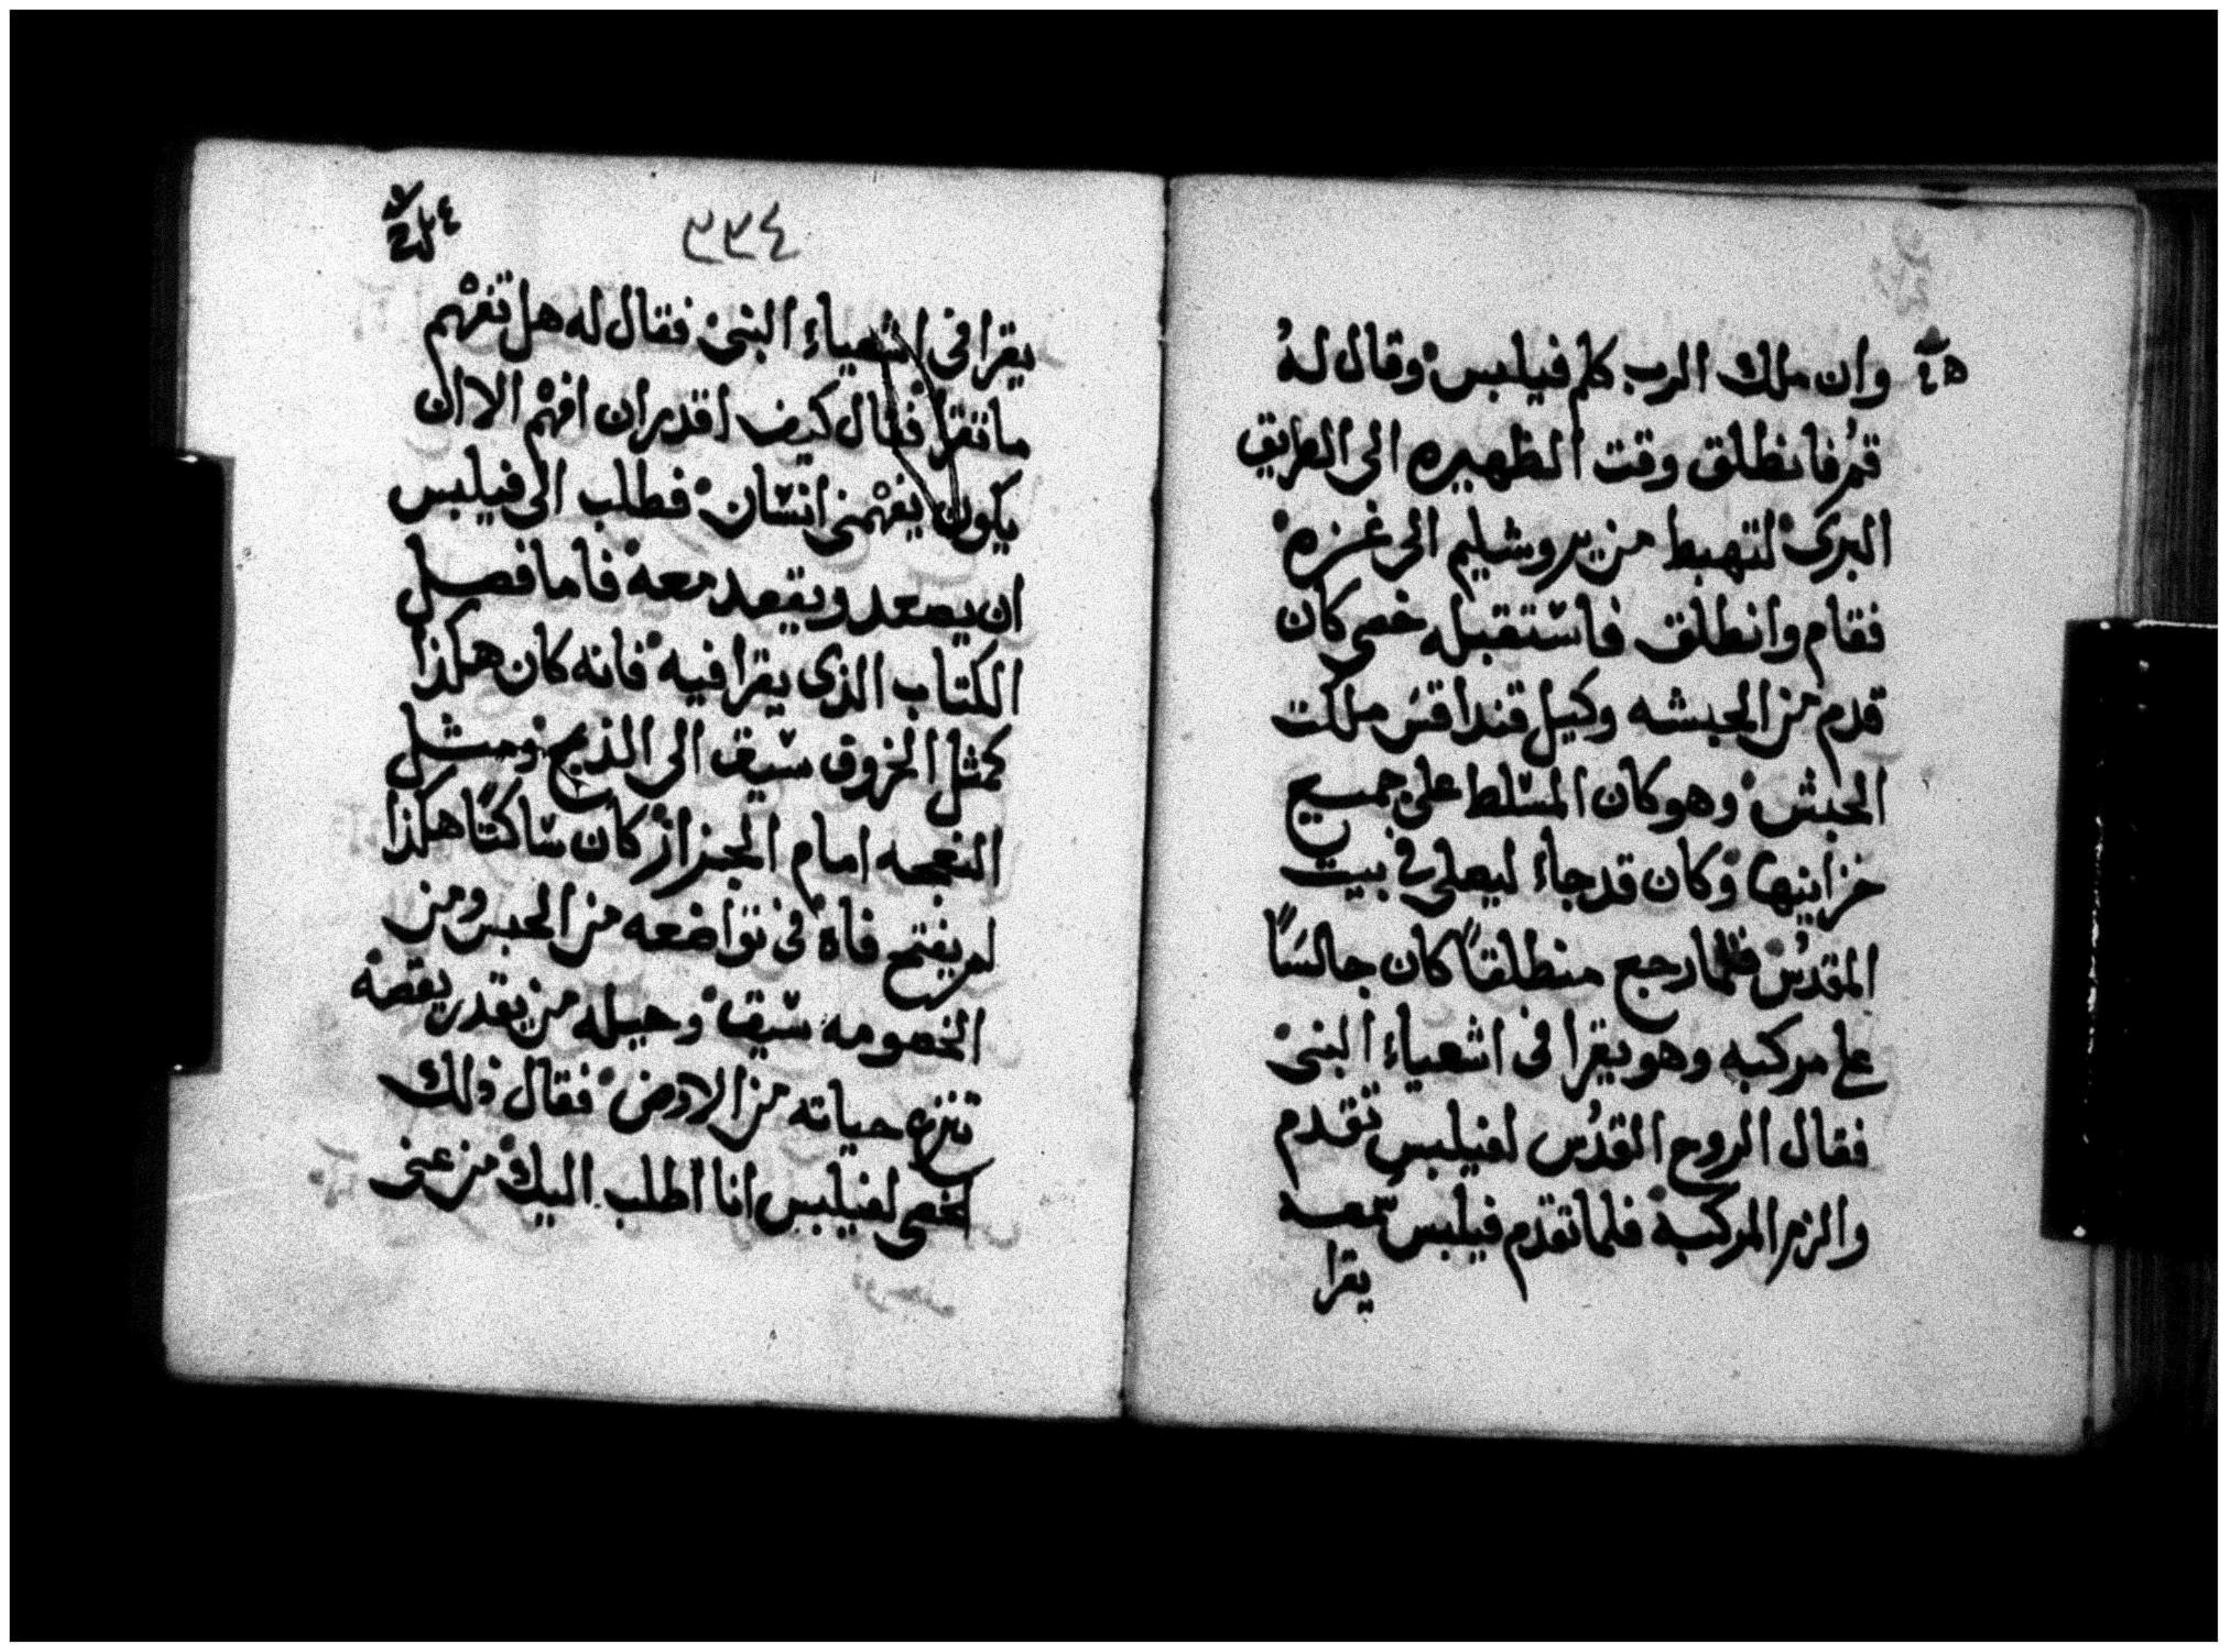 وان ملاك الرب كلم فيلبس وقال لهُ
قمُ فانطلق وقت الظهيره الى الطريق
البرى لتهبط من يروشليم الى غزه
فقام وانطلق فاستقبله خصى كان
قدم من الحبشه وكيل قنداقس ملكت
الحبش وهو كان المسلط على جميع
خزاينها وكان قد جاء ليصلى فى بيت
المقدُس فلما رجع منطلقاً كان جالسًا
على مركبه وهو يقرا فى اشعياء النبى
فقال الروح القدُس لفيلبس تقدم
والزم المركبه فلما تقدم فيلبس سمعه
يقرا
٣٣٤
يقرا فى اشعياء النبى فقال له هل تفهم
ما تقرا فقال كيف اقدر ان افهم الا ان
يكون يفهمنى انسان فطلب الى فيلبس
ان يصعد ويقعد معه فاما فصل
الكتاب الذى يقرا فيه فانه كان هكذا
كمثل الخروف سيق الى الذبح ومثل
النعجه امام الجزاز كان ساكتًا هكذا
لم يفتح فاه فى تواضعه من الحبس ومن
الخصومه سيق وجيله من يقدر يقصه
تنزع حياته من الارض فقال ذلك
الخصى لفيلبس انا اطلب اليك من عنى